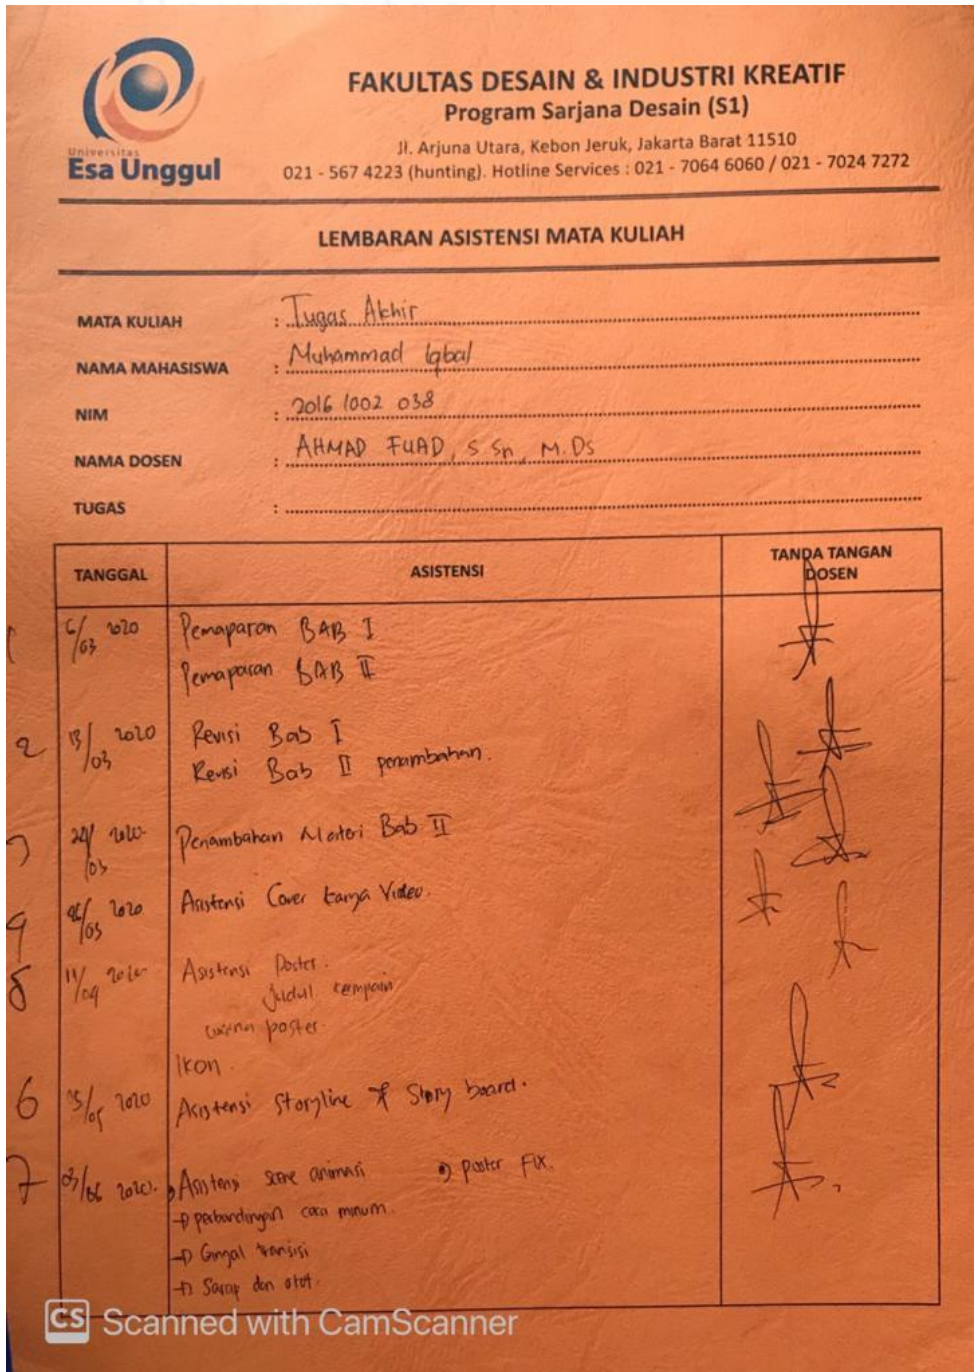 Universitas
Esa Unggul
FAKULTAS DESAIN & INDUSTRI KREATIF
Program Sarjana Desain (S1)
Jl. Arjuna Utara, Kebon Jeruk, Jakarta Barat 11510
021 - 567 4223 (hunting). Hotline Services : 021 - 7064 6060 / 021 - 7024 7272
LEMBARAN ASISTENSI MATA KULIAH
MATA KULIAH : Tugas Akhir
NAMA MAHASISWA : Muhammad Iqbal
NIM : 2016 1002 038
NAMA DOSEN : AHMAD FUAD, S Sn, M.Ds
TUGAS :
TANGGAL ASISTENSI TANDA TANGAN DOSEN
1 6/03 2020 Pemaparan BAB I
Pemaparan BAB II
2 13/03 2020 Revisi Bab I
Revisi Bab II penambahan.
3 2020 Penambahan Materi Bab II
4 2020 Asistensi Cover karya Video.
11/04 2020 Asistensi Poster.
Judul
warna poster.
Ikon.
6 2020 Asistensi Storyline & Story board.
7 03/06 2020. Asistensi scene animasi Poster FIX.
perbandingan cara minum.
Ginjal transisi
Saraf dan otot.
CS Scanned with CamScanner